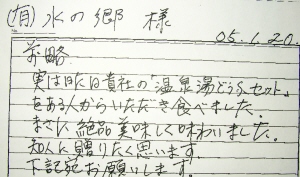 (有)水の郷 様
05.1.20.
前略
実は我たは貴社の「温泉湯どうふセット」
をある人からいただき食べました。
まさに絶品美味しく味わいました。
知人に贈りたく思います。
下記宛お願いします。